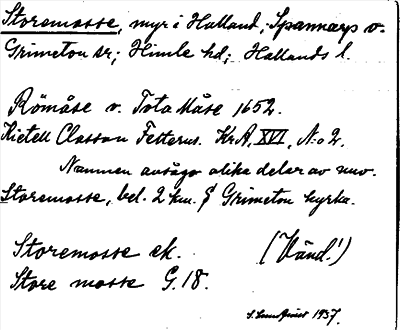 Storemosse, myr i Halland, Spannarp o.
Grimeton sr; Himle hd; Hallands l.
Römåse v. Tota Måse 1652.
Kietell Classon Felterus. KrA, XVI, N:o 2.
Namnen avsågo olika delar av nuv.
Storemosse, bel. 2 km. S Grimeton kyrka.
Storemosse ek. (Vänd!)
Store mosse G. 18.
1937.